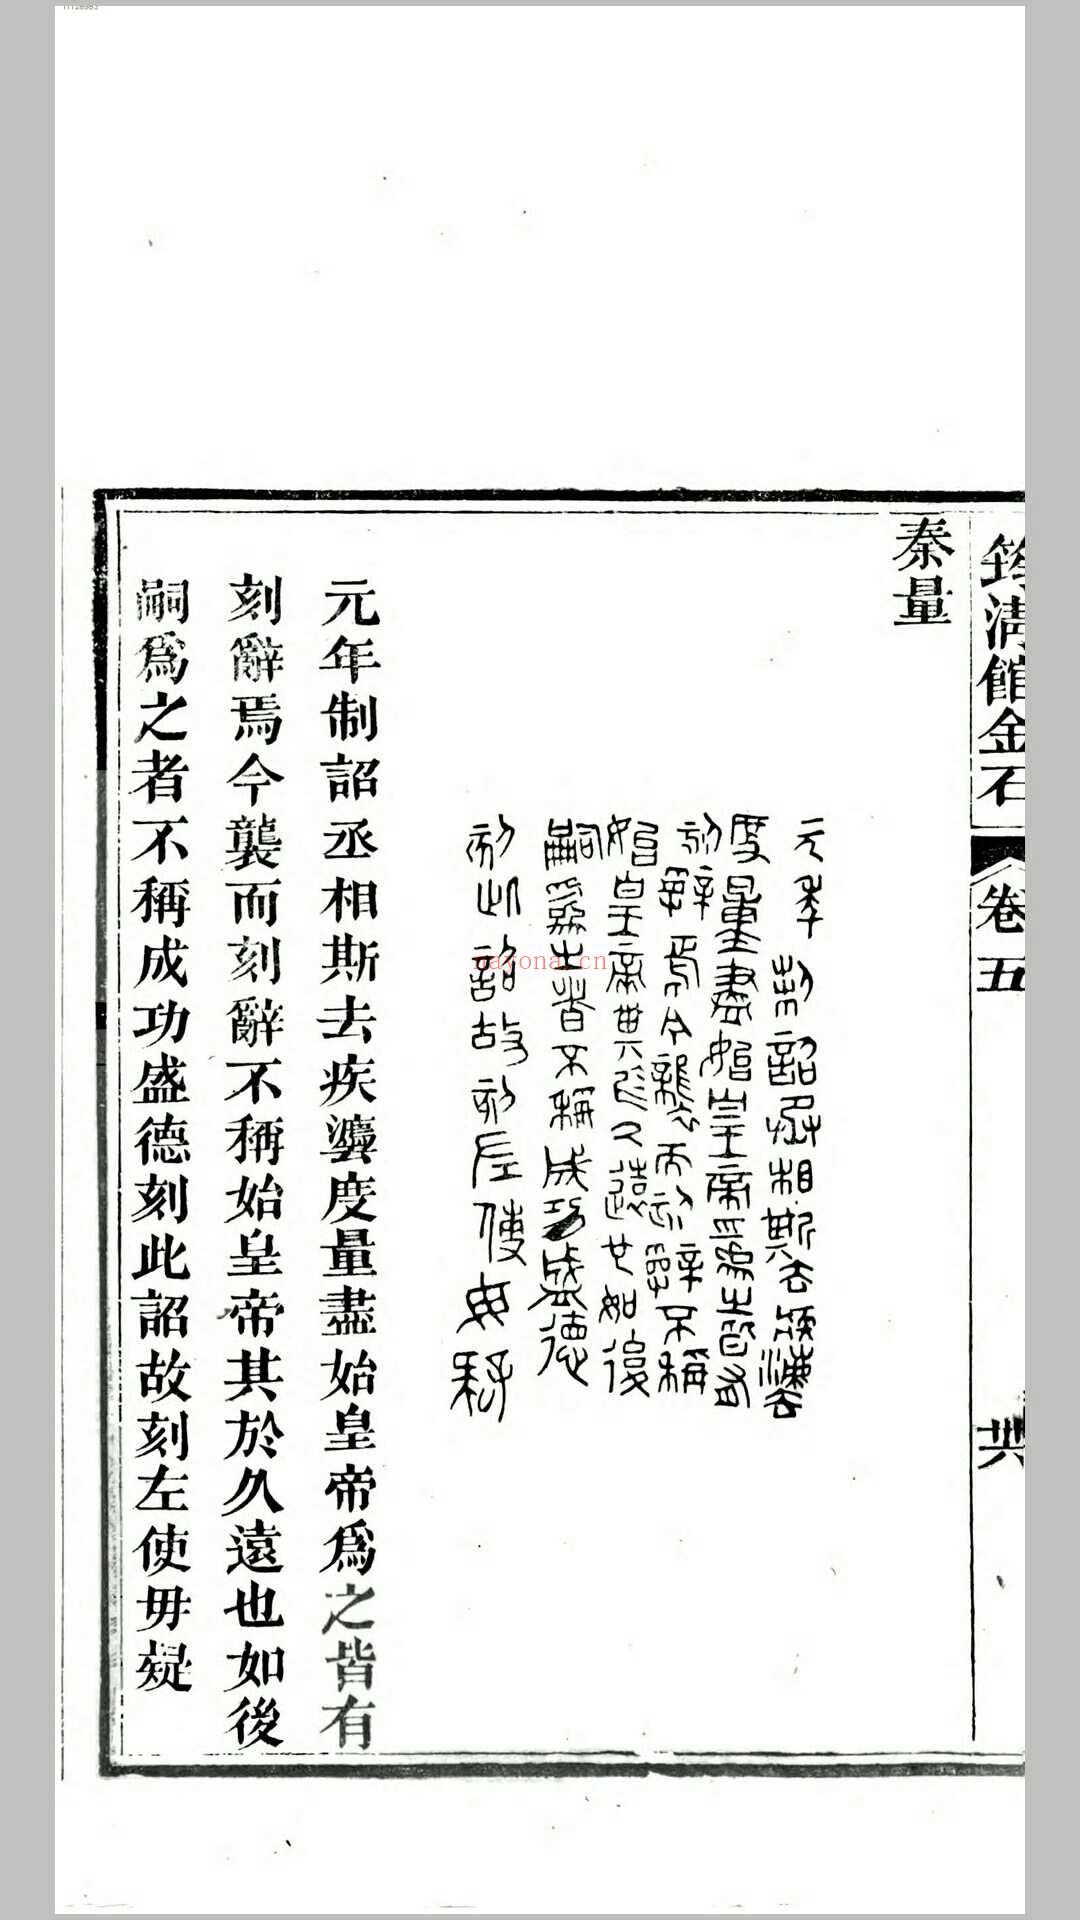 筠清館金石
卷五
秦量
元年制詔丞相斯去疾灋
度量盡始皇帝為之皆有
刻辭焉今襲而刻辭不稱
始皇帝其於久遠也如後
嗣為之者不稱成功盛德
刻此詔故刻左使毋疑
元年制詔丞相斯去疾灋度量盡始皇帝爲之皆有
刻辭焉今襲而刻辭不稱始皇帝其於久遠也如後
嗣爲之者不稱成功盛德刻此詔故刻左使毋疑
nayona.cn